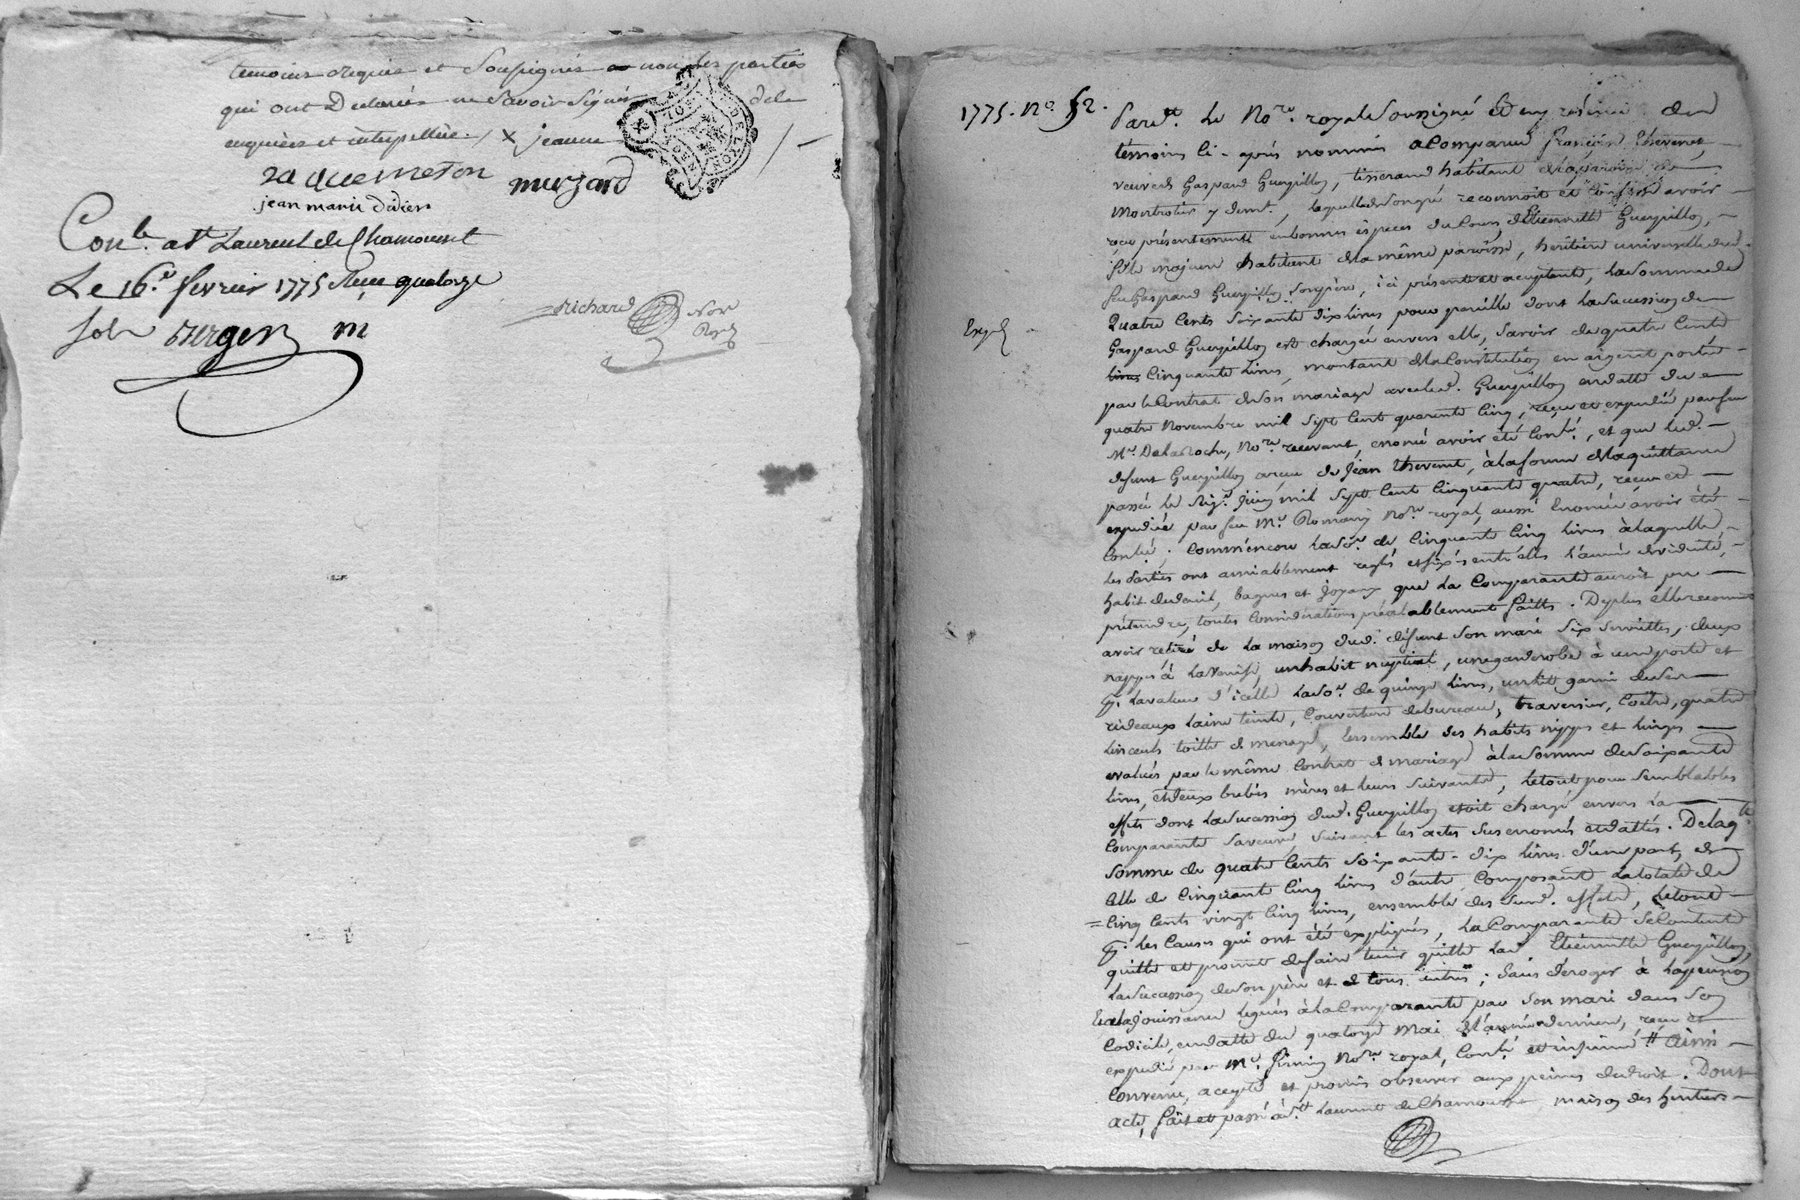 temoins requis et soussignés non les parties
qui ont Declarés ne savoir signer de ce
enquises et interpellée. / X jeanne
jaquemeton murjard
jean marie didier
Con.le a St Laurent de Chamousset
Le 16.e fevrier 1775 Reçu quatorze
sols Berger
Richard No.re Roy.
1775. No. 52. Pard.t Le No.re royal Soussigné et en présence des
témoins ci-après nommés a Comparue françoise Thevenet,
veuve de Gaspard Guerpillon, tisserand habitant de la paroisse de
Montrotier y demt., laquelle de son gré reconnoit et confesse avoir
reçu présentement en bonnes espèces du Cours, d'Etiennette Guerpillon,
fille majeure habitante de la même paroisse, heritière universelle dud.
feu Gaspard Guerpillon son père, ici présente et aceptante, la somme de
Quatre Cents soixante dix livres pour pareille dont la sucession de
Gaspard Guerpillon est chargée envers elle, savoir de quatre Cents
Exp.
livres Cinquante livres, montant de la Constitution en argent portée
par le Contrat de son mariage avec led. Guerpillon en datte du
quatre Novembre mil sept Cent quarente Cinq, reçu et expedié par feu
Me. DelaRoche, No.re recevant, enoncé avoir été Conlé, et que led.
defunt Guerpillon a reçu de Jean Thevenet, à la forme de la quittance
passée le Juin mil sept Cent Cinquante quatre, reçue et
expediée par feu Me. Romany No.re royal, aussi enoncée avoir été
Conlée; Comm'encore la so.e de Cinquante Cinq livres à laquelle
les Parties ont amiablement reglés et fixés entr'elles l'année de viduité,
habit de deuil, bagues et joyaux que la Comparante auroit pu
prétendre, toutes Considérations préalablement faittes. De plus elle reconnoit
avoir retiré de la maison dud. défunt son mari six serviettes, deux
nappes à la Venise, un habit nuptial, une garderobe à une porte et
p. la valeur d'icelle la so.e de quinze livres, un lit garni de ses
rideaux laine teinte, Couverture de bureau, traversier, Coëtre, quatre
linceuls toille de menage, l'ensemble des habits nippes et linges
evalués par le même Contrat de mariage à la somme de soixante
livres, et deux brebis mères et leurs suivants, le tout pour semblables
effets dont la sucession dud. Guerpillon etoit chargé envers la
Comparante sa veuve, suivant les actes sus enoncés et dattés. De laq.le
somme de quatre Cents soixante-dix livres d'une part, et
Celle de Cinquante Cinq livres d'autre, Composant la totale de
Cinq Cents vingt Cinq livres, ensemble des sud. effets, le tout
p. les Causes qui ont été expliquées, la Comparante se Contente
quitte et promet de faire tenir quitte lad. Etiennette Guerpillon,
la sucession de son père et de tous autres; sans déroger à la pension
et à la jouissance leguées à la Comparante par son mari dans son
Codicile, en datte du quatorze Mai de l'année dernière, reçu et
expedié par Me. No.re royal, Conlé et insinué. Ainsi
Convenu, acepté et promis observer aux peines de droit. Dont
acte, fait et passé à St. Laurent de Chamousset maison des heritiers